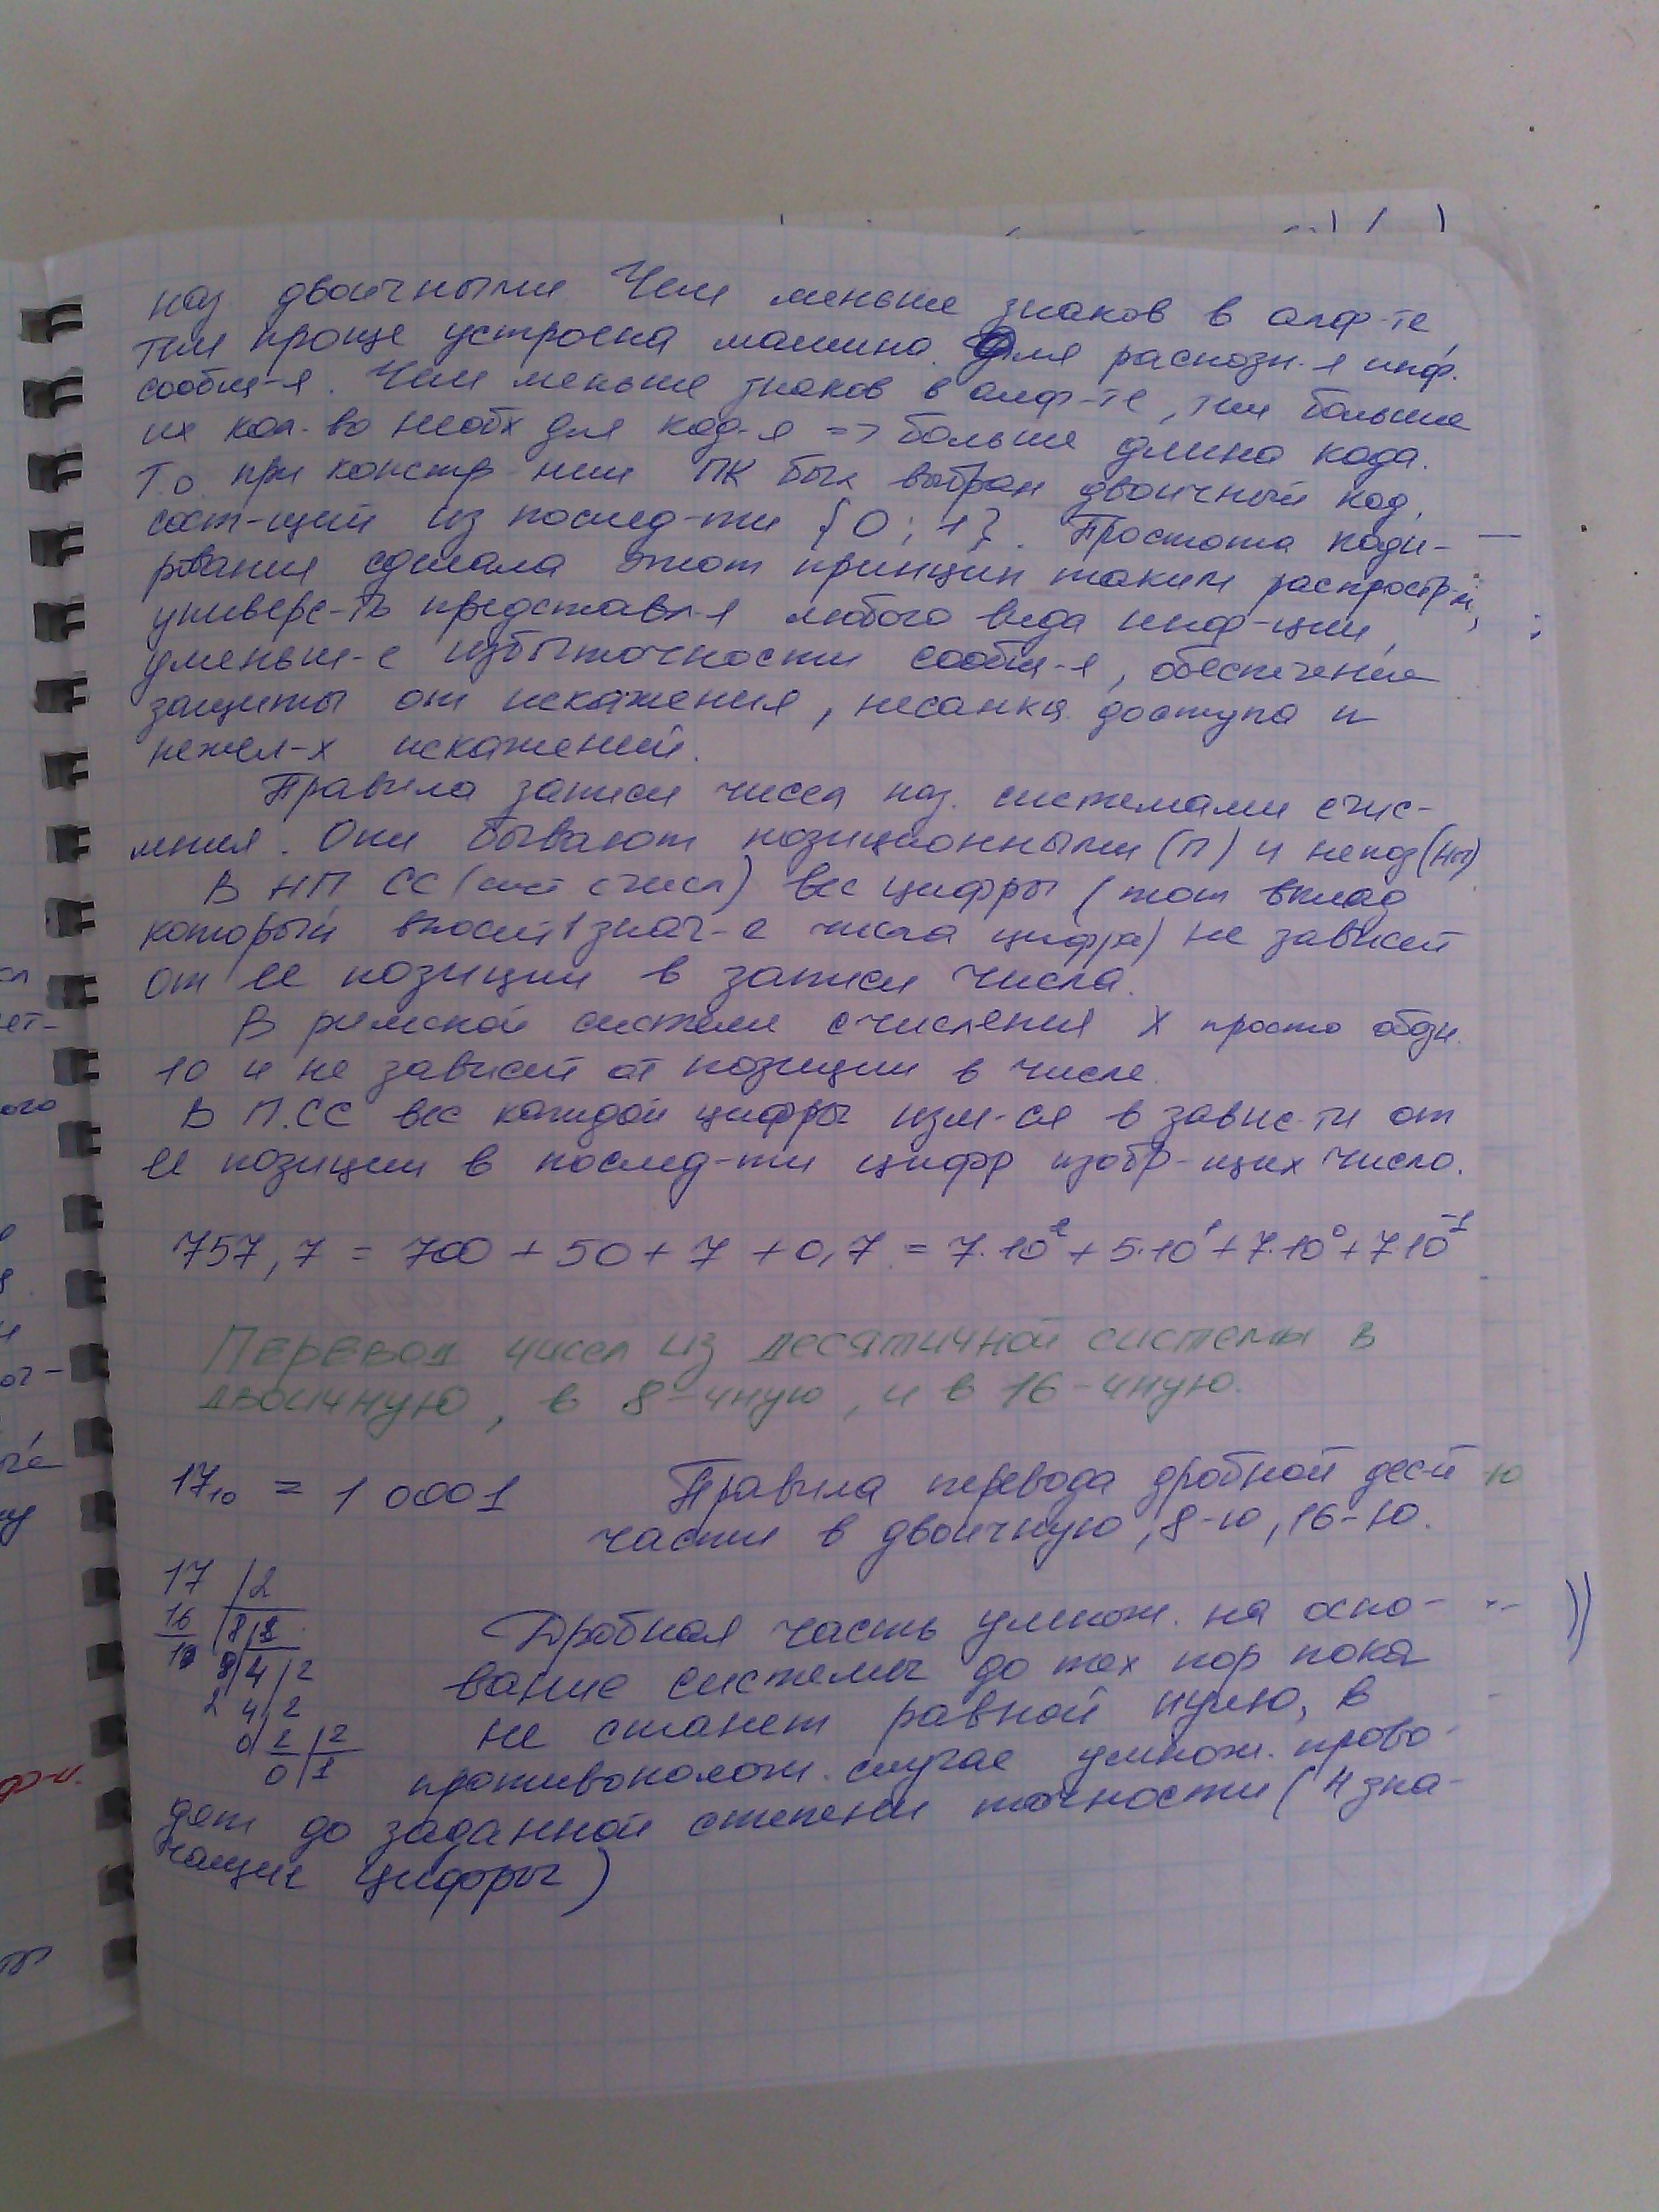 наз двоичными Чем меньше знаков в алф-те,
тем проще устроена машина. Для распозн-я инф.
сообщ-я. Чем меньше знаков в алф-те, тем больше
их кол-во необх для код-я => больше длина кода.
Т.о. при констр-нии ПК был выбран двоичный код,
сост-щий из послед-ти {0; 1}. Простота коди-
рования сделала этот принцип таким распростр-м,
универс-ть представл-я любого вида инф-ции,
уменьш-е избыточности сообщ-я, обеспечение
защиты от искажения, несанкц. доступа и
нежел-х искажений.
Правила записи чисел наз. системами счис-
ления. Они бывают позиционными (П) и непоз (НП)
В НП СС (сист счисл) вес цифры (тот вклад
который вносит знач-е числа цифра) не зависит
от ее позиции в записи числа.
В римской системе счисления X просто обозн.
10 и не зависит от позиции в числе.
В П.СС вес каждой цифры изм-ся в завис-ти от
ее позиции в послед-ти цифр изобр-щих число.
757,7 = 700 + 50 + 7 + 0,7 = 7·10² + 5·10¹ + 7·10⁰ + 7·10⁻¹
Перевод чисел из десятичной системы в
двоичную, в 8-чную, и в 16-чную.
17₁₀ = 1 0001
Правила перевода дробной дес-й
части в двоичную, 8-ю, 16-ю.
17 /2
16 |8/2
1 8/4/2
4/2
0/2/2
0/1
Дробная часть умнож. на осно-
вание системы до тех пор пока
не станет равной нулю, в
противополож. случае умнож. прово-
дят до заданной степени точности (4 зна-
чащие цифры)